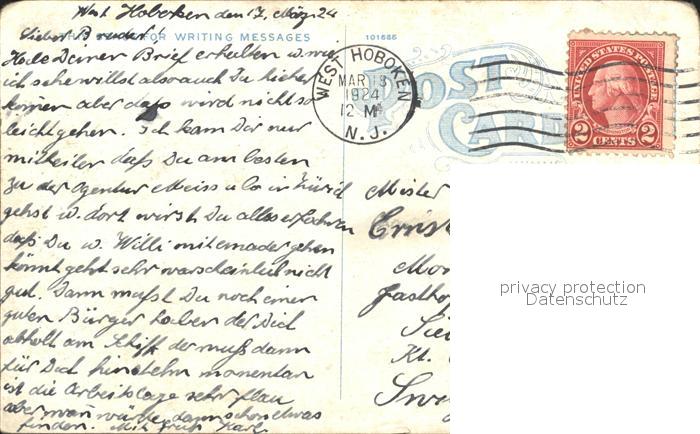 West Hoboken den 17. März 24
Lieber Bruder!
FOR WRITING MESSAGES
101686
Habe Deinen Brief erhalten u. wie
ich sehe willst also auch Du hieher
komen aber daß wird nicht so
leicht gehen. Ich kam Dir nur
mitteilen daß Du am besten
zu der Agentur Meiss u Co in Zürich
gehst u. dort wirst Du alles erfahren
daß Du u. Willi miteinader gehen
könnt geht sehr warscheinlich nicht
gut. Dann mußt Du noch einen
guten Bürger haben der Dich
abholt am Schiff der muß dann
für Dich hinstehn momentan
ist die Arbeitslage sehr flau
aber man würde dann schon etwas
finden. Mit Gruß Karl.
POST
CARD
WEST HOBOKEN
MAR 18
1924
12 M
N. J.
UNITED STATES POSTAGE
2 CENTS 2
Mister
Ernst
Mo
Gastho
Kt.
privacy protection
Datenschutz